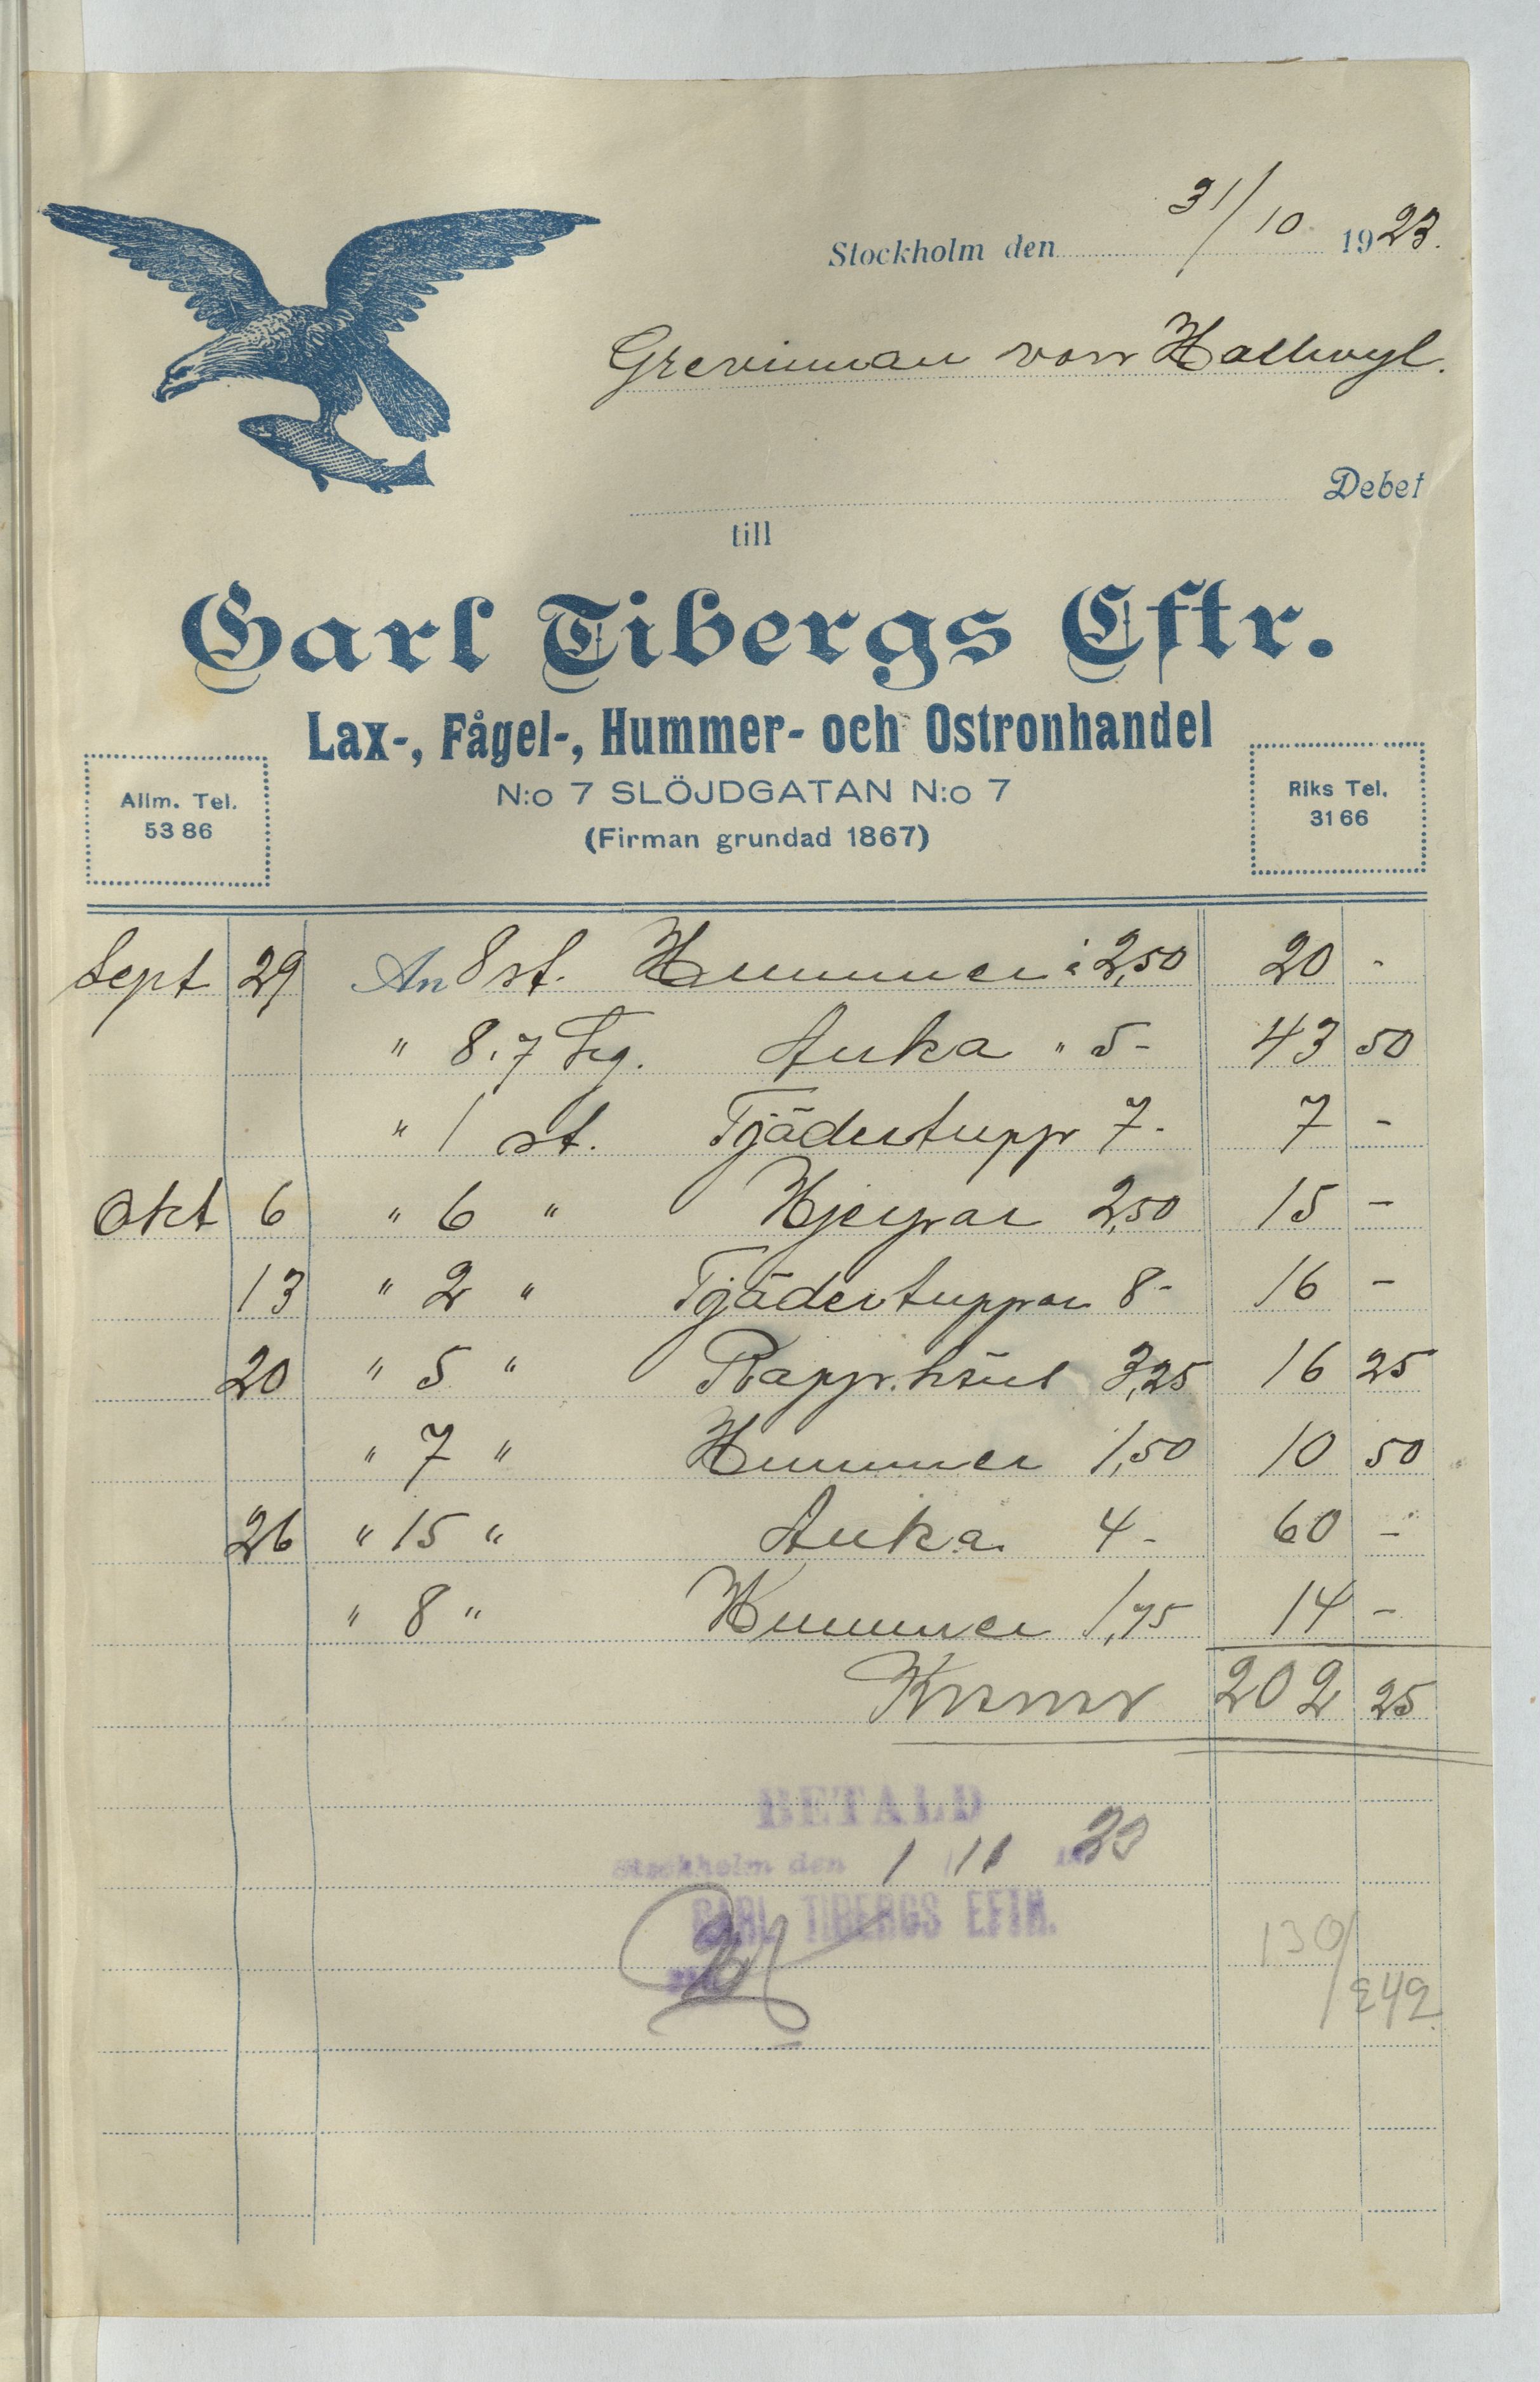 Stockholm den 31/10 1923.
Grevinnan von Hallwyl.
Debet
till
Carl Tibergs Eftr.
Lax-, Fågel-, Hummer- och Ostronhandel
N:o 7 SLÖJDGATAN N:o 7
(Firman grundad 1867)
Allm. Tel.
53 86
Riks Tel.
31 66
Sept 29 An 8 st. Hummer à 2,50 20 -
" 8.7 kg. Anka " 5- 43 50
" 1 st. Tjädertupp 7- 7 -
Okt 6 " 6 " Hjerpar 2,50 15 -
13 " 2 " Tjädertuppar 8- 16 -
20 " 5 " Rapphöns 3,25 16 25
" 7 " Hummer 1,50 10 50
26 " 15 " Anka 4- 60 -
" 8 " Hummer 1,75 14 -
Kronor 202 25
BETALD
Stockholm den 1 11 1923
CARL TIBERGS EFTR.
130/242